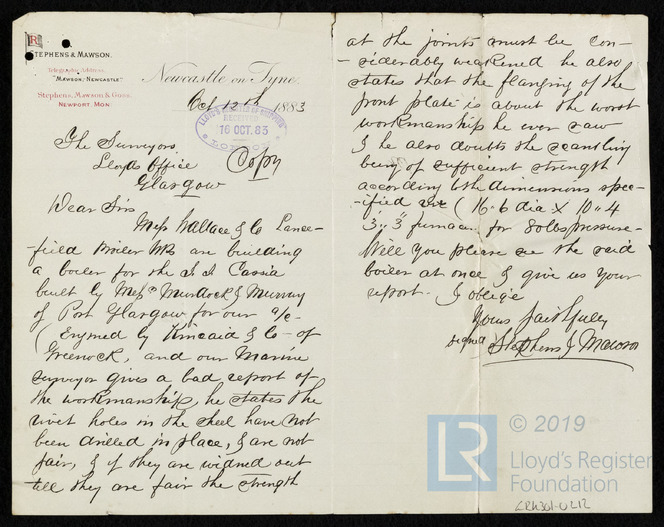 STEPHENS & MAWSON.
Telegraphic Address,
"MAWSON, NEWCASTLE"
Stephens, Mawson & Goss,
NEWPORT, MON.
Newcastle on Tyne,
Oct 12th 1883
LLOYD'S REGISTER OF SHIPPING
RECEIVED
16 OCT. 83
LONDON
The Surveyors,
Lloyds Office
Copy
Glasgow
Dear Sirs
Messrs Wallace & Co Lance-
-field Boiler Wks are building
a boiler for the S.S. Cassia
built by Messrs Murdock & Murray
of Port Glasgow for our a/c-
(Engined by Kincaid & Co - of
Greenock, and our Marine
surveyor gives a bad report of
the workmanship, he states the
rivet holes in the shell have not
been drilled in place, & are not
fair, & if they are widned out
till they are fair the strength
at the joints must be con-
-siderably weakened he also
states that the flanging of the
front plate is about the worst
workmanship he ever saw
& he also doubts the scantling
being of sufficient strength
according to the dimensions spec-
-ified (16-6 dia X 10"4
3'"3" furnaces for 80lbs pressure-
Will you please see the said
boiler at once & give us your
report - & oblige
Yours faithfully
signed Stephens & Mawson
© 2019
LR
Lloyd's Register
Foundation